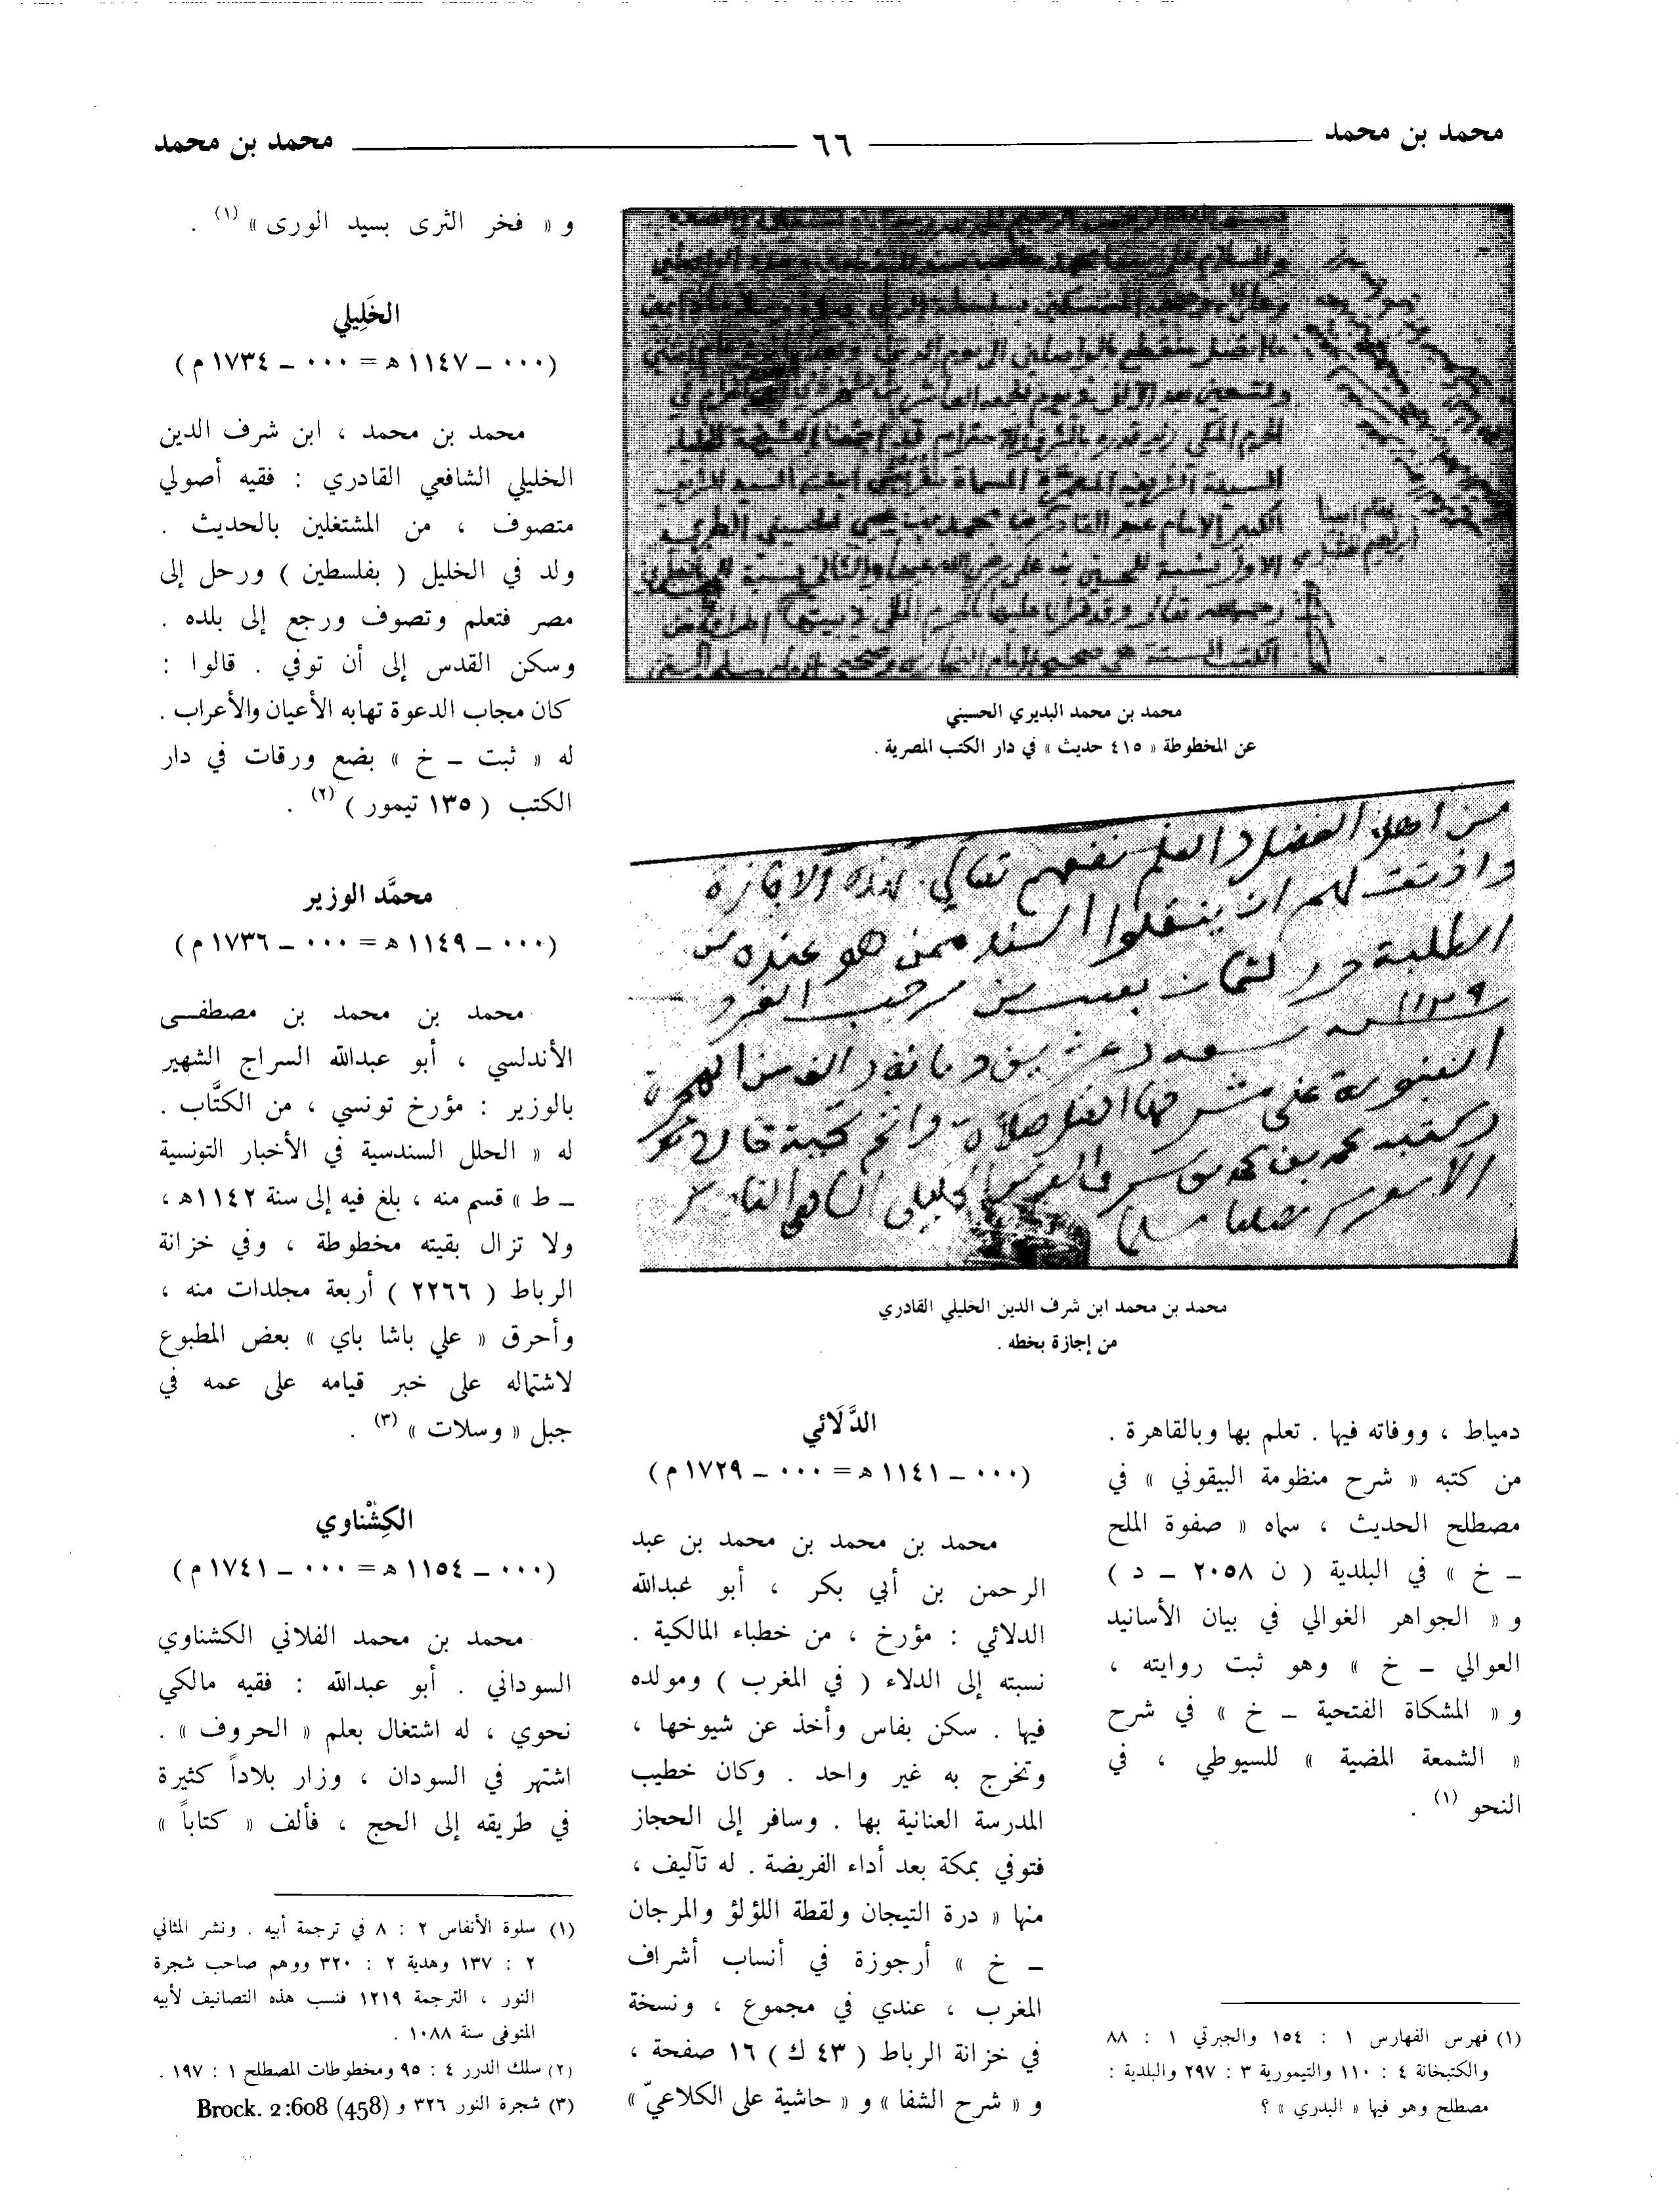 محمد بن محمد ٦٦ محمد بن محمد
محمد بن محمد البديري الحسيني
عن المخطوطة « ٤١٥ حديث » في دار الكتب المصرية .
من اهل الفضل والعلم نفعهم تعالى بهذه الاجازة
واذنت لهم ان ينقلوا السند ممن هو عنده من
الطلبة
١١٣٩
محمد بن محمد ابن شرف الدين الخليلي القادري
من إجازة بخطه .
دمياط ، ووفاته فيها . تعلم بها وبالقاهرة .
من كتبه « شرح منظومة البيقوني » في
مصطلح الحديث ، سماه « صفوة الملح
ــ خ » في البلدية ( ن ٢٠٥٨ ــ د )
و « الجواهر الغوالي في بيان الأسانيد
العوالي ــ خ » وهو ثبت روايته ،
و « المشكاة الفتحية ــ خ » في شرح
« الشمعة المضية » للسيوطي ، في
النحو (١) .
(١) فهرس الفهارس ١ : ١٥٤ والجبرتي ١ : ٨٨
والكتبخانة ٤ : ١١٠ والتيمورية ٣ : ٢٩٧ والبلدية :
مصطلح وهو فيها « البدري » ؟
الدَّلَائي
(٠٠٠ ــ ١١٤١ ه = ٠٠٠ ــ ١٧٢٩ م)
محمد بن محمد بن محمد بن عبد
الرحمن بن أبي بكر ، أبو عبدالله
الدلائي : مؤرخ ، من خطباء المالكية .
نسبته إلى الدلاء ( في المغرب ) ومولده
فيها . سكن بفاس وأخذ عن شيوخها ،
وتخرج به غير واحد . وكان خطيب
المدرسة العنانية بها . وسافر إلى الحجاز
فتوفي بمكة بعد أداء الفريضة . له تآليف ،
منها « درة التيجان ولقطة اللؤلؤ والمرجان
ــ خ » أرجوزة في أنساب أشراف
المغرب ، عندي في مجموع ، ونسخة
في خزانة الرباط ( ٤٣ ك ) ١٦ صفحة ،
و « شرح الشفا » و « حاشية على الكلاعيّ »
و « فخر الثرى بسيد الورى » (١) .
الخَلِيلي
(٠٠٠ ــ ١١٤٧ ه = ٠٠٠ ــ ١٧٣٤ م)
محمد بن محمد ، ابن شرف الدين
الخليلي الشافعي القادري : فقيه أصولي
متصوف ، من المشتغلين بالحديث .
ولد في الخليل ( بفلسطين ) ورحل إلى
مصر فتعلم وتصوف ورجع إلى بلده .
وسكن القدس إلى أن توفي . قالوا :
كان مجاب الدعوة تهابه الأعيان والأعراب .
له « ثبت ــ خ » بضع ورقات في دار
الكتب ( ١٣٥ تيمور ) (٢) .
محمَّد الوزير
(٠٠٠ ــ ١١٤٩ ه = ٠٠٠ ــ ١٧٣٦ م)
محمد بن محمد بن مصطفى
الأندلسي ، أبو عبدالله السراج الشهير
بالوزير : مؤرخ تونسي ، من الكتَّاب .
له « الحلل السندسية في الأخبار التونسية
ــ ط » قسم منه ، بلغ فيه إلى سنة ١١٤٢ه ،
ولا تزال بقيته مخطوطة ، وفي خزانة
الرباط ( ٢٢٦٦ ) أربعة مجلدات منه ،
وأحرق « علي باشا باي » بعض المطبوع
لاشتماله على خبر قيامه على عمه في
جبل « وسلات » (٣) .
الكِشْناوي
(٠٠٠ ــ ١١٥٤ ه = ٠٠٠ ــ ١٧٤١ م)
محمد بن محمد الفلاني الكشناوي
السوداني . أبو عبدالله : فقيه مالكي
نحوي ، له اشتغال بعلم « الحروف » .
اشتهر في السودان ، وزار بلاداً كثيرة
في طريقه إلى الحج ، فألف « كتاباً »
(١) سلوة الأنفاس ٢ : ٨ في ترجمة أبيه . ونشر المثاني
٢ : ١٣٧ وهدية ٢ : ٣٢٠ ووهم صاحب شجرة
النور ، الترجمة ١٢١٩ فنسب هذه التصانيف لأبيه
المتوفى سنة ١٠٨٨ .
(٢) سلك الدرر ٤ : ٩٥ ومخطوطات المصطلح ١ : ١٩٧ .
(٣) شجرة النور ٣٢٦ و Brock. 2:608 (458)